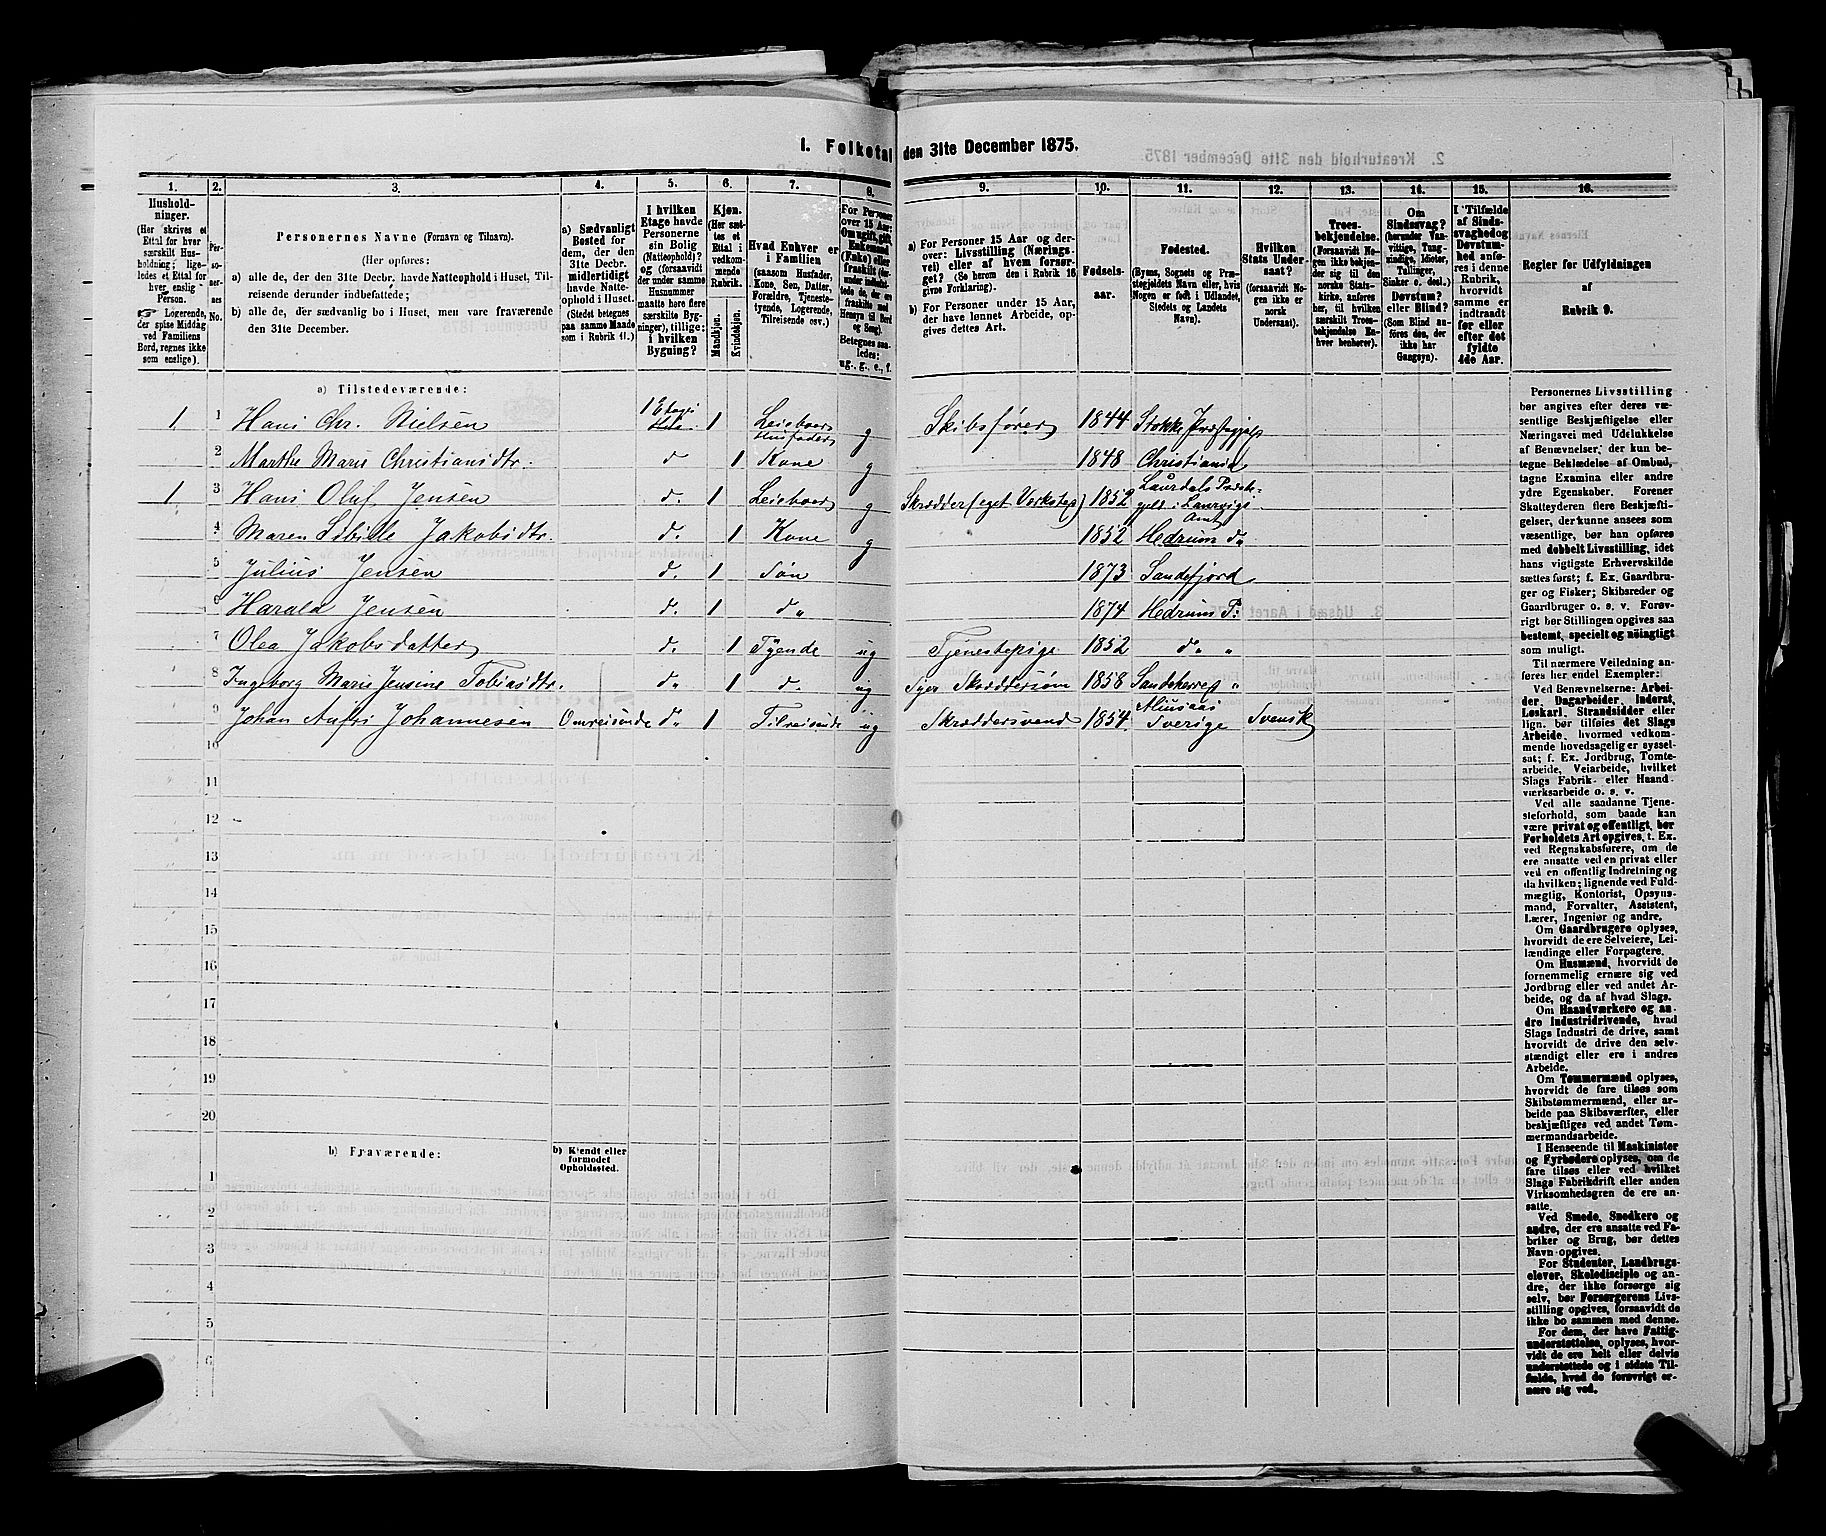 I. Folketal den 31te December 1875.
1. 2. 3. 4. 5. 6. 7. 8. 9. 10. 11. 12. 13. 14. 15. 16.
Husholdninger.
(Her skrives et
Ettal for hver
særskilt Husholdning;
ligeledes et Ettal for
hver enslig
Person.
☞ Logerende,
der spise Middag
ved Familiens
Bord, regnes ikke
som enslige).
Personernes No.
Personernes Navne (Fornavn og Tilnavn).
(Her opføres:
a) alle de, der den 31te Decbr. havde Natteophold i Huset, Tilreisende derunder indbefattede;
b) alle de, der sædvanlig bo i Huset, men vare fraværende
den 31te December.
a) Sædvanligt
Bosted for
dem, der den
31te Decbr.
midlertidigt
havde Natteophold i Huset.
(Stedet betegnes
paa samme Maade
som i Rubrik 11.)
I hvilken
Etage havde
Personerne
sin Bolig
(Natteophold)?
og (forsaavidt
der under samme
Husnummer
maatte høre flere
særskilte Bygninger), tillige:
i hvilken
Bygning?
Kjøn.
(Her sættes et
Ettal i
vedkommende
Rubrik.
Mandkjøn.
Kvindekjøn.
Hvad Enhver er
i Familien
(saasom Husfader,
Kone, Søn, Datter,
Forældre, Tjenestetyende, Logerende,
Tilreisende osv.)
For Personer
over 15 Aar:
Om ugift, gift,
Enkemand
(Enke) eller
fraskilt
Betegnes saaledes:
ug., g., e., f.
a) For Personer 15 Aar og derover: Livsstilling (Næringsvei) eller af hvem forsørget? (Se herom den i Rubrik 16
givne Forklaring).
b) For Personer under 15 Aar,
der have lønnet Arbeide, opgives dettes Art.
Fødselsaar.
Fødested.
(Byens, Sognets og Præstegjeldets Navn, eller, hvis
Nogen er født i Udlandet,
Stedets og Landets
Navn).
Hvilken
Stats Undersaat?
(forsaavidt Nogen ikke er
norsk
Undersaat).
Troesbekjendelse.
(Forsaavidt Nogen ikke bekjender sig til den
norske Statskirke, anføres
her, til hvilken
særskilt Troesbekjendelse Enhver henhører).
Om
Sindssvag?
(herunder Vanvittige, Tungsindige, Idioter,
Tullinger,
Sinker o. desl.)
Døvstum?
eller Blind?
(Som Blind anføres den, der
ikke har
Gangsyn).
I Tilfælde
af Sindssvaghed og
Døvstumhed anføres i denne
Rubrik,
hvorvidt
samme er
indtraadt
før eller
efter det
fyldte
4de Aar.
Regler for Udfyldningen
af
Rubrik 9.
a) Tilstedeværende:
1 1 Hans Chr. Nielsen 1 Etage 1 Leieboer Husfader g Skibsfører 1844 Stokke Præstegjeld
2 Marthe Marie Christiansdtr. d. 1 Kone g 1848 Christiania
1 3 Hans Oluf Jensen d. 1 Leieboer g Skrædder (eget Verksted) 1852 Laurdals Præstegjeld i Laurvigs Amt
4 Maren Sibille Jakobsdtr. d. 1 Kone g 1852 Hedrum do
5 Julius Jensen d. 1 Søn 1873 Sandefjord
6 Harald Jensen d. 1 d " 1874 Hedrum P:
7 Olea Jakobsdatter d. 1 Tyende ug Tjenestepige 1852 d " "
8 Ingeborg Marie Jensine Tobiasdtr. d " 1 d. ug Syer Skræddersøm 1858 Sandeherred "
9 Johan Johannesen Omreisende d " 1 Tilreisende ug Skræddersvend 1854 Sverige Svensk
10
11
12
13
14
15
16
17
18
19
20
b) Fraværende:
b) Kjendt eller
formodet
Opholdssted.
1
2
3
4
5
6
Personernes Livsstilling
bør angives efter deres væsentlige Beskjæftigelse eller
Næringsvei med Udelukkelse
af Benævnelser, der kun betegne Beklædelse af Ombud,
tagne Examina eller andre
ydre Egenskaber. Forener
Skatteyderen flere Beskjæftigelser, der kunne ansees som
væsentlige, bør han opføres
med dobbelt Livsstilling, idet
hans vigtigste Erhvervskilde
sættes først; f. Ex. Gaardbruger og Fisker; Skibsreder og
Gaardbruger o. s. v. Forøvrigt bør Stillingen opgives saa
bestemt, specielt og nøiagtigt
som muligt.
Til nærmere Veiledning anføres her endel Exempler:
Ved Benævnelserne: Arbeider, Dagarbeider, Inderst,
Løskarl, Strandsidder eller
lign. bør tilføies det Slags
Arbeide, hvormed vedkommende hovedsagelig er sysselsat; f. Ex. Jordbrug, Tomtearbeide, Veiarbeide, hvilket
Slags Fabrik- eller Haandværksarbeide o. s. v.
Ved alle saadanne Tjenesteforhold, som baade kan
være privat og offentligt, bør
Forholdets Art opgives, t. Ex.
ved Regnskabsførere, om de
ere ansatte ved en privat eller
ved en offentlig Indretning og
da hvilken; lignende ved Fuldmægtig, Kontorist, Opsynsmand, Forvalter, Assistent,
Lærer, Ingeniør og andre.
Om Gaardbrugere oplyses,
hvorvidt de ere Selveiere, Leilændinge eller Forpagtere.
Om Husmænd, hvorvidt de
fornemmelig ernære sig ved
Jordbrug eller ved andet Arbeide, og da af hvad Slags.
Om Haandværkere og andre Industridrivende, hvad
Slags Industri de drive, samt
hvorvidt de drive den selvstændigt eller ere i andres
Arbeide.
Om Tømmermænd oplyses,
hvorvidt de fare tilsøs som
Skibstømmermænd, eller arbeide paa Skibsværfter, eller
beskjæftiges ved andet Tømmermandsarbeide.
I Henseende til Maskinister
og Fyrbødere oplyses, om de
fare tilsøs eller ved hvilket
Slags Fabrikdrift eller anden
Virksomhedsgren de ere ansatte.
Ved Smede, Snedkere og
andre, der ere ansatte ved Fabriker og Brug, bør dettes
Navn opgives.
For Studenter, Landbrugselever, Skoledisciple og andre, der ikke forsørge sig
selv, bør Forsørgerens Livsstilling opgives, forsaavidt de
ikke bo sammen med denne.
For dem, der have Fattigunderstøttelse, oplyses, hvorvidt de ere helt eller delvis
understøttede og i sidste Tilfælde, hvad de forøvrigt ernære sig ved.